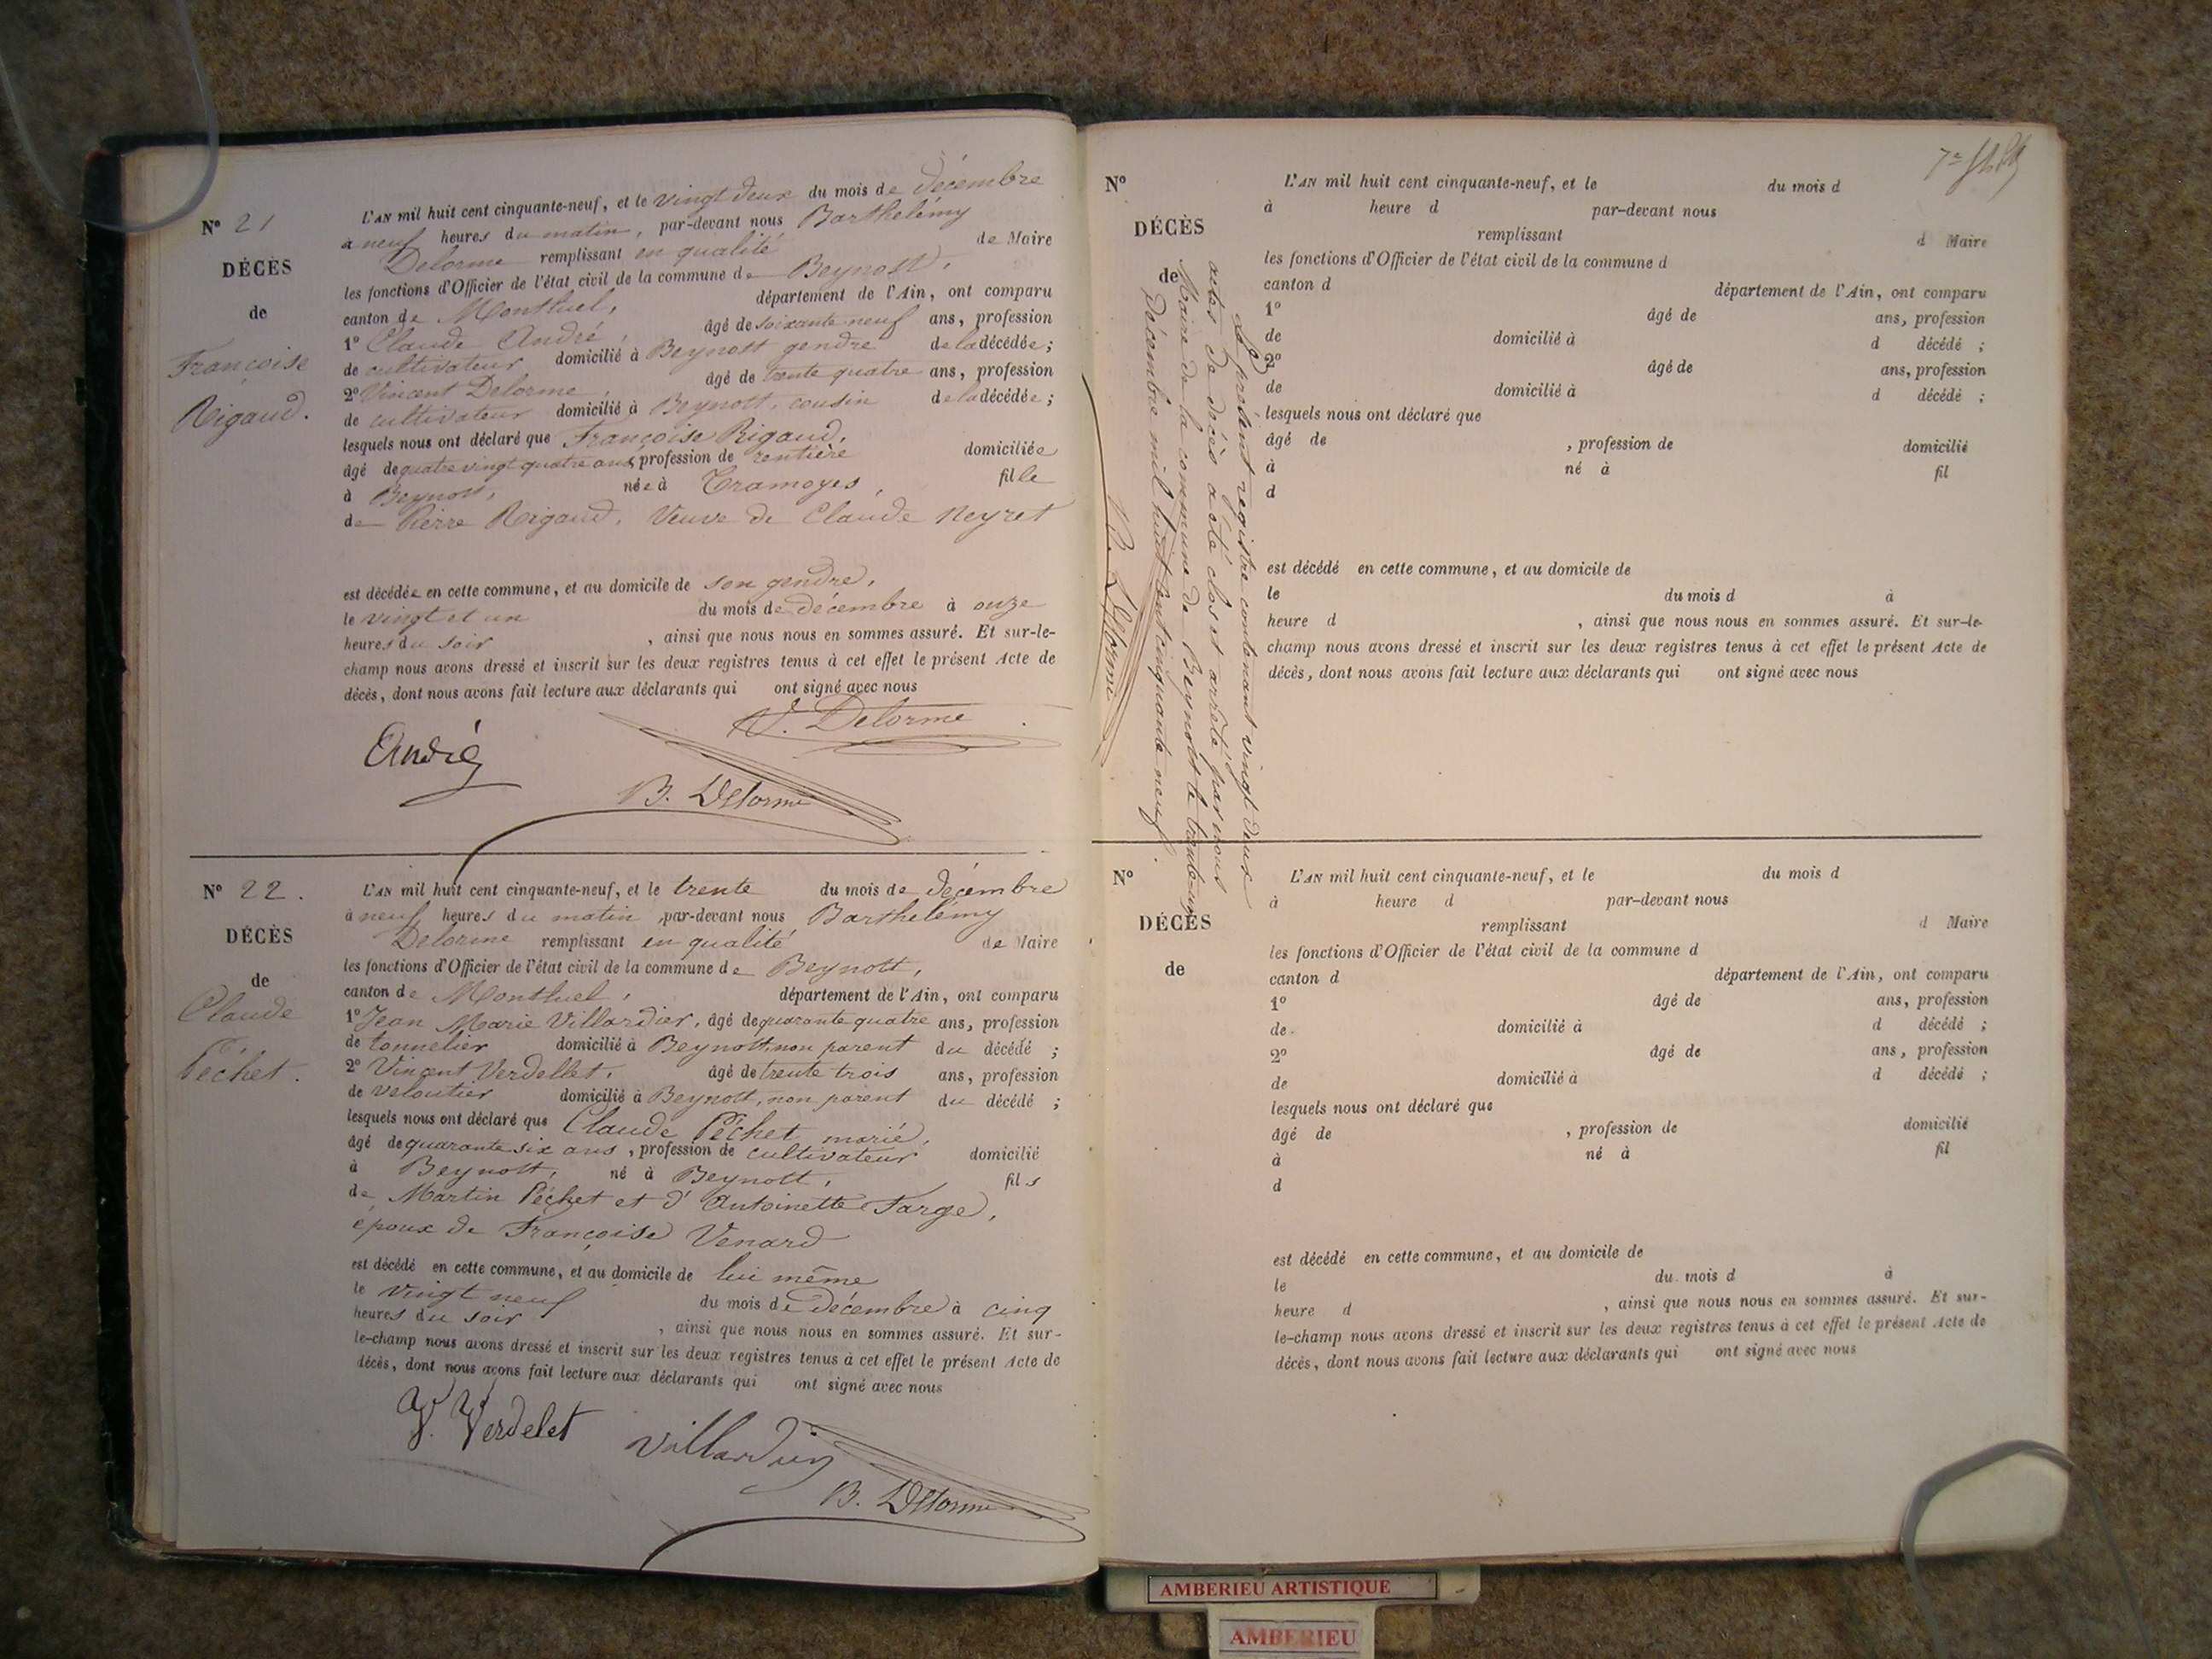 N° 21
DÉCÈS
de
Françoise
Rigaud.
L'AN mil huit cent cinquante-neuf, et le vingt deux du mois de décembre
à neuf heures du matin, par-devant nous Barthelémy
Delorme remplissant en qualité de Maire
les fonctions d'Officier de l'état civil de la commune de Beynost,
canton de Montluel, département de l'Ain, ont comparu
1° Claude André, âgé de soixante neuf ans, profession
de cultivateur domicilié à Beynost gendre de la décédée;
2° Vincent Delorme, âgé de trente quatre ans, profession
de cultivateur domicilié à Beynost, cousin de la décédée;
lesquels nous ont déclaré que Françoise Rigaud,
âgé de quatre vingt quatre ans, profession de rentière domiciliée
à Beynost, née à Tramoyes, fille
de Pierre Rigaud, Veuve de Claude Neyret
est décédée en cette commune, et au domicile de son gendre,
le vingt et un du mois de décembre à onze
heures du soir, ainsi que nous nous en sommes assuré. Et sur-le-
champ nous avons dressé et inscrit sur les deux registres tenus à cet effet le présent Acte de
décès, dont nous avons fait lecture aux déclarants qui ont signé avec nous
V. Delorme
André
B. Delorme
N° 22.
DÉCÈS
de
Claude
Péchet.
L'AN mil huit cent cinquante-neuf, et le trente du mois de décembre
à neuf heures du matin, par-devant nous Barthelémy
Delorme remplissant en qualité de Maire
les fonctions d'Officier de l'état civil de la commune de Beynost,
canton de Montluel, département de l'Ain, ont comparu
1° Jean Marie Villardier, âgé de quarante quatre ans, profession
de tonnelier domicilié à Beynost, non parent du décédé ;
2° Vincent Verdellet, âgé de trente trois ans, profession
de veloutier domicilié à Beynost, non parent du décédé ;
lesquels nous ont déclaré que Claude Péchet, marié,
âgé de quarante six ans, profession de cultivateur domicilié
à Beynost, né à Beynost, fils
de Martin Péchet et d'Antoinette Farge,
époux de Françoise Venard
est décédé en cette commune, et au domicile de lui même
le vingt neuf du mois de Décembre à cinq
heures du soir, ainsi que nous nous en sommes assuré. Et sur-
le-champ nous avons dressé et inscrit sur les deux registres tenus à cet effet le présent Acte de
décès, dont nous avons fait lecture aux déclarants qui ont signé avec nous
V. Verdelet
Villardier
B. Delorme
N°
DÉCÈS
de
L'AN mil huit cent cinquante-neuf, et le du mois d
à heure d par-devant nous
remplissant d Maire
les fonctions d'Officier de l'état civil de la commune d
canton d département de l'Ain, ont comparu
1° âgé de ans, profession
de domicilié à d décédé ;
2° âgé de ans, profession
de domicilié à d décédé ;
lesquels nous ont déclaré que
âgé de , profession de domicilié
à né à fil
d
est décédé en cette commune, et au domicile de
le du mois d à
heure d , ainsi que nous nous en sommes assuré. Et sur-le-
champ nous avons dressé et inscrit sur les deux registres tenus à cet effet le présent Acte de
décès, dont nous avons fait lecture aux déclarants qui ont signé avec nous
Le présent registre contenant vingt deux
actes de décès a été clos et arrêté par nous
Maire de la commune de Beynost le trente un
Décembre mil huit cent cinquante neuf.
B. Delorme
N°
DÉCÈS
de
L'AN mil huit cent cinquante-neuf, et le du mois d
à heure d par-devant nous
remplissant d Maire
les fonctions d'Officier de l'état civil de la commune d
canton d département de l'Ain, ont comparu
1° âgé de ans, profession
de domicilié à d décédé ;
2° âgé de ans, profession
de domicilié à d décédé ;
lesquels nous ont déclaré que
âgé de , profession de domicilié
à né à fil
d
est décédé en cette commune, et au domicile de
le du mois d à
heure d , ainsi que nous nous en sommes assuré. Et sur-
le-champ nous avons dressé et inscrit sur les deux registres tenus à cet effet le présent Acte de
décès, dont nous avons fait lecture aux déclarants qui ont signé avec nous
AMBERIEU ARTISTIQUE
AMBERIEU